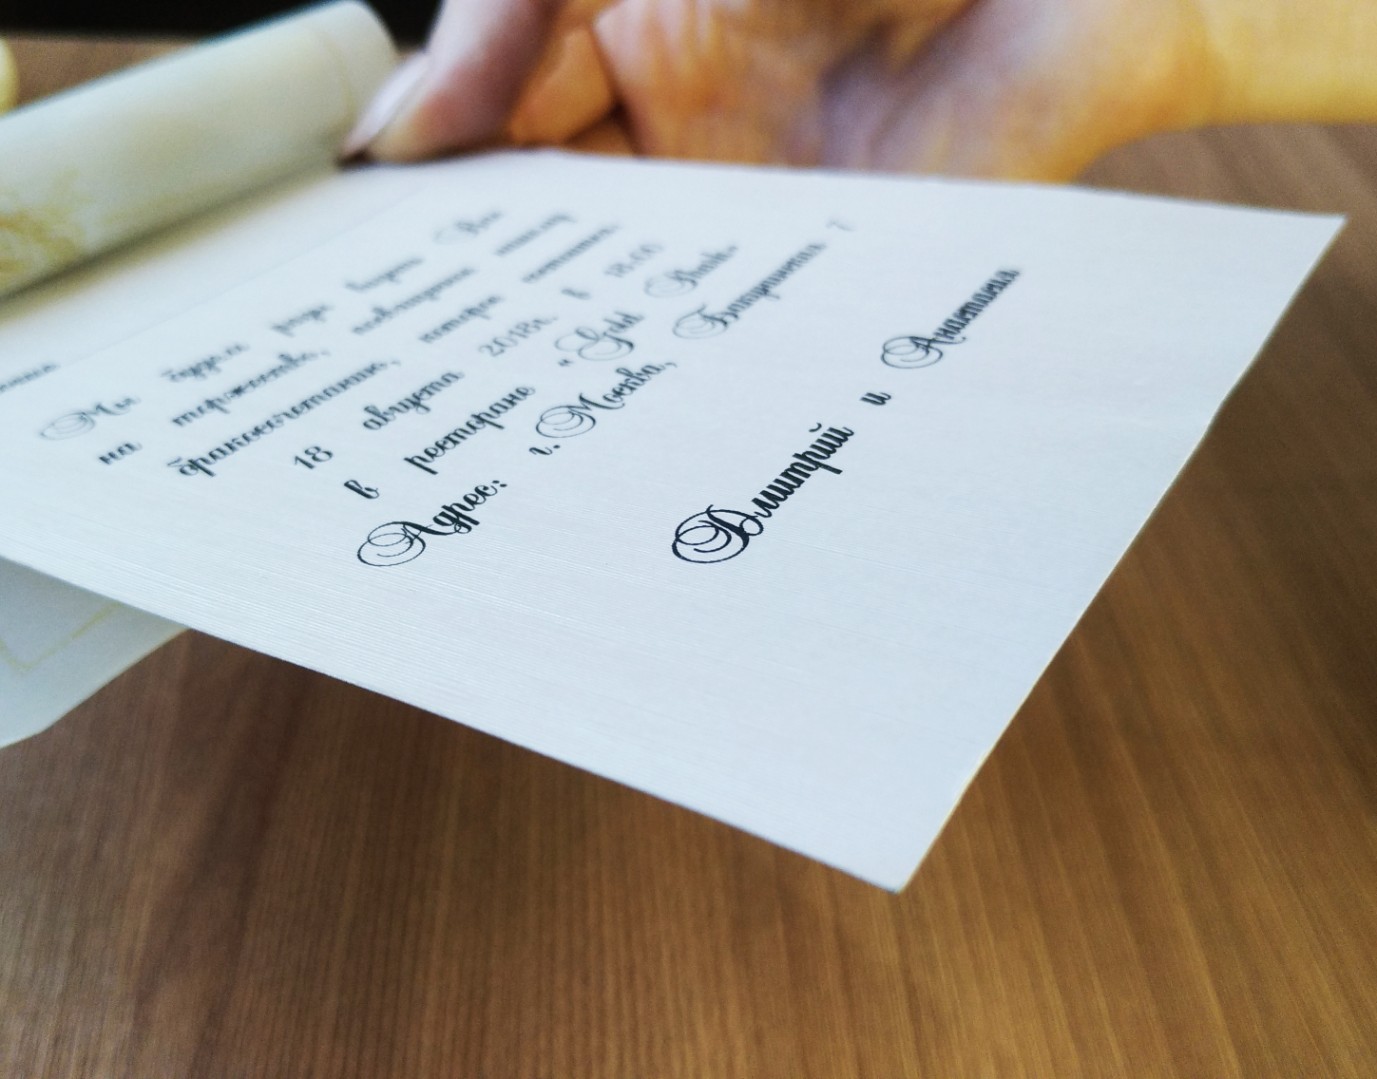 Мы будем рады видеть Вас
на торжестве, посвященном нашему
бракосочетанию, которое состоится
18 августа 2018г. в 18:00
в ресторане "Gold
Адрес: г.Москва, 7
Дмитрий и Анастасия